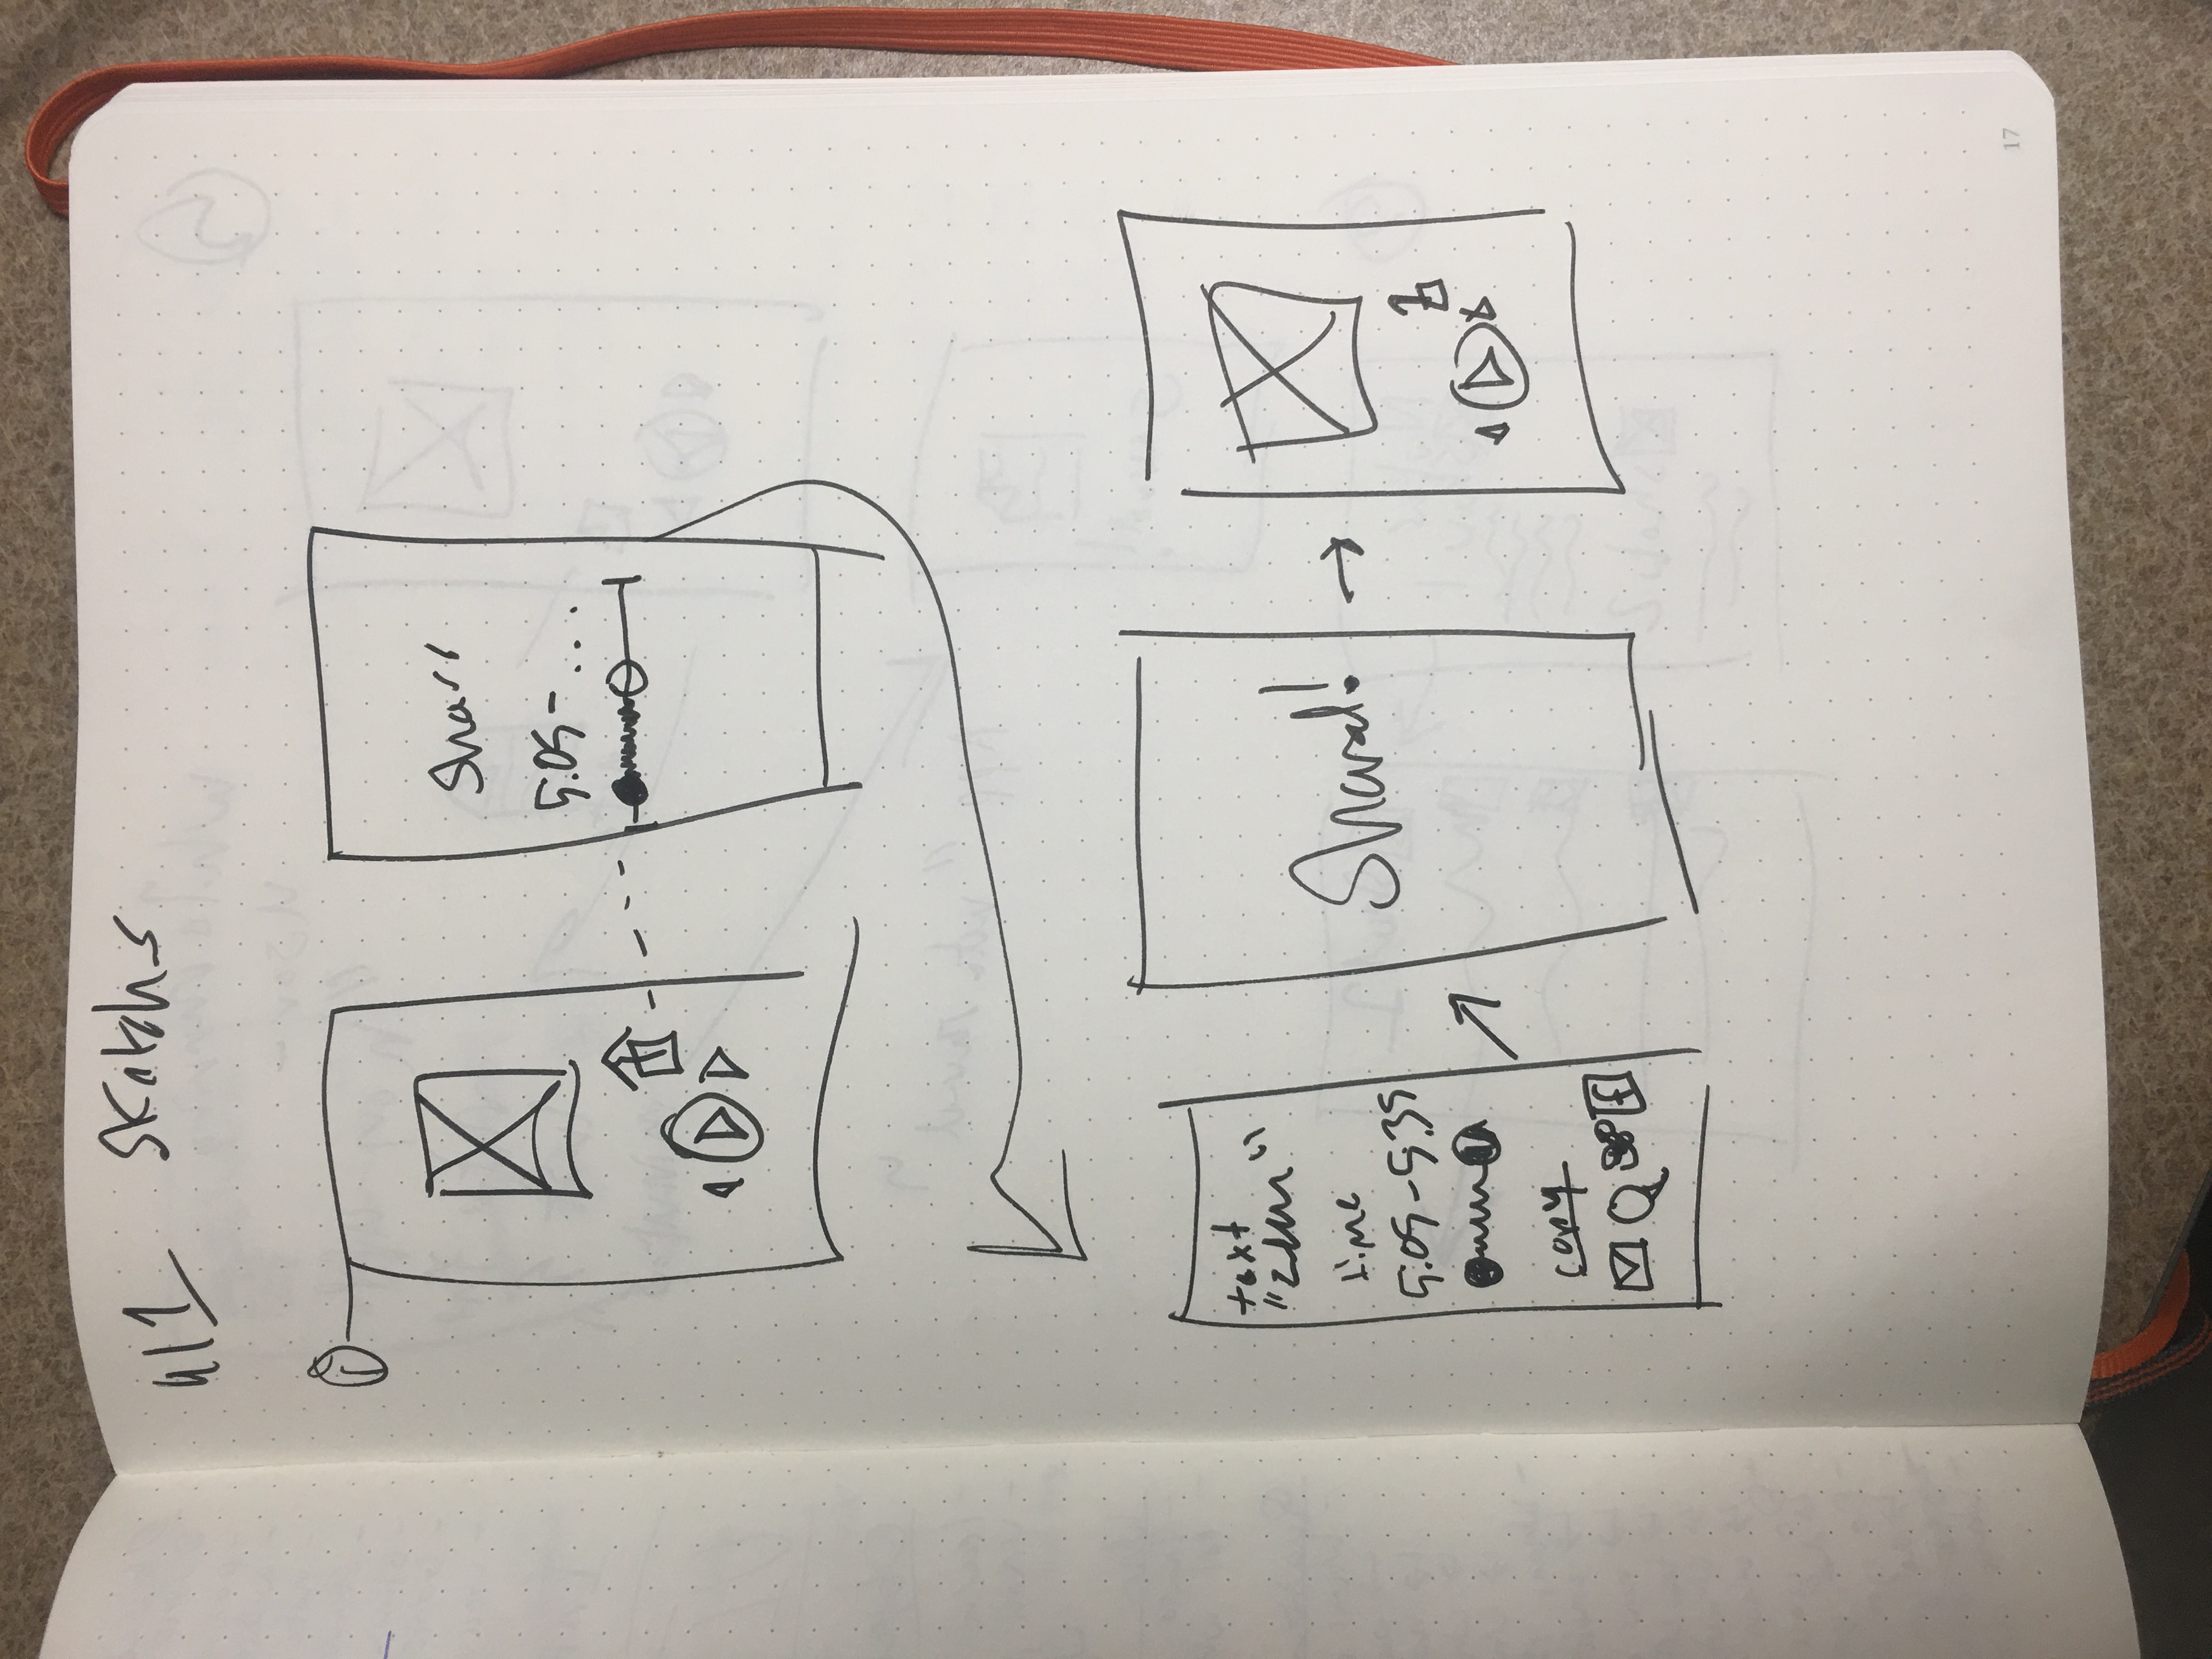 4/1 Sketchs
1
Share
5:05 - ...
text
time
5:05 - 5:35
copy
f
Shared!
17